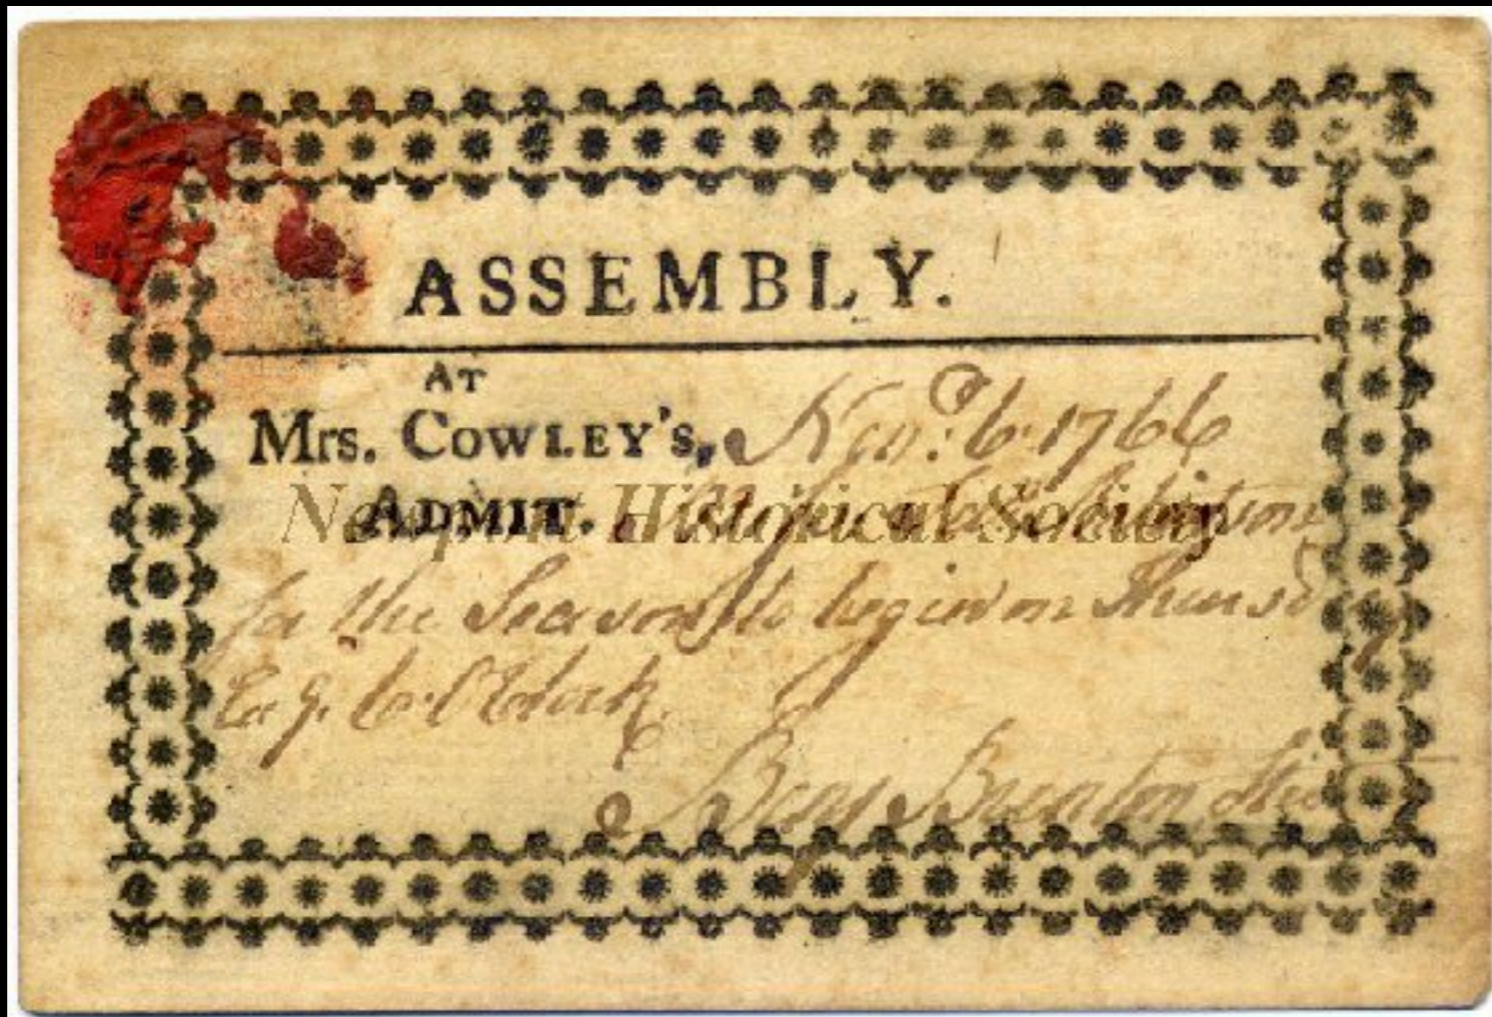 ASSEMBLY.
AT
Mrs. COWLEY'S, Novr. 6. 1766
ADMIT.
Newport Historical Society
for the Season to begin on Thursday
Eg. 6. OClock
Benj Brenton